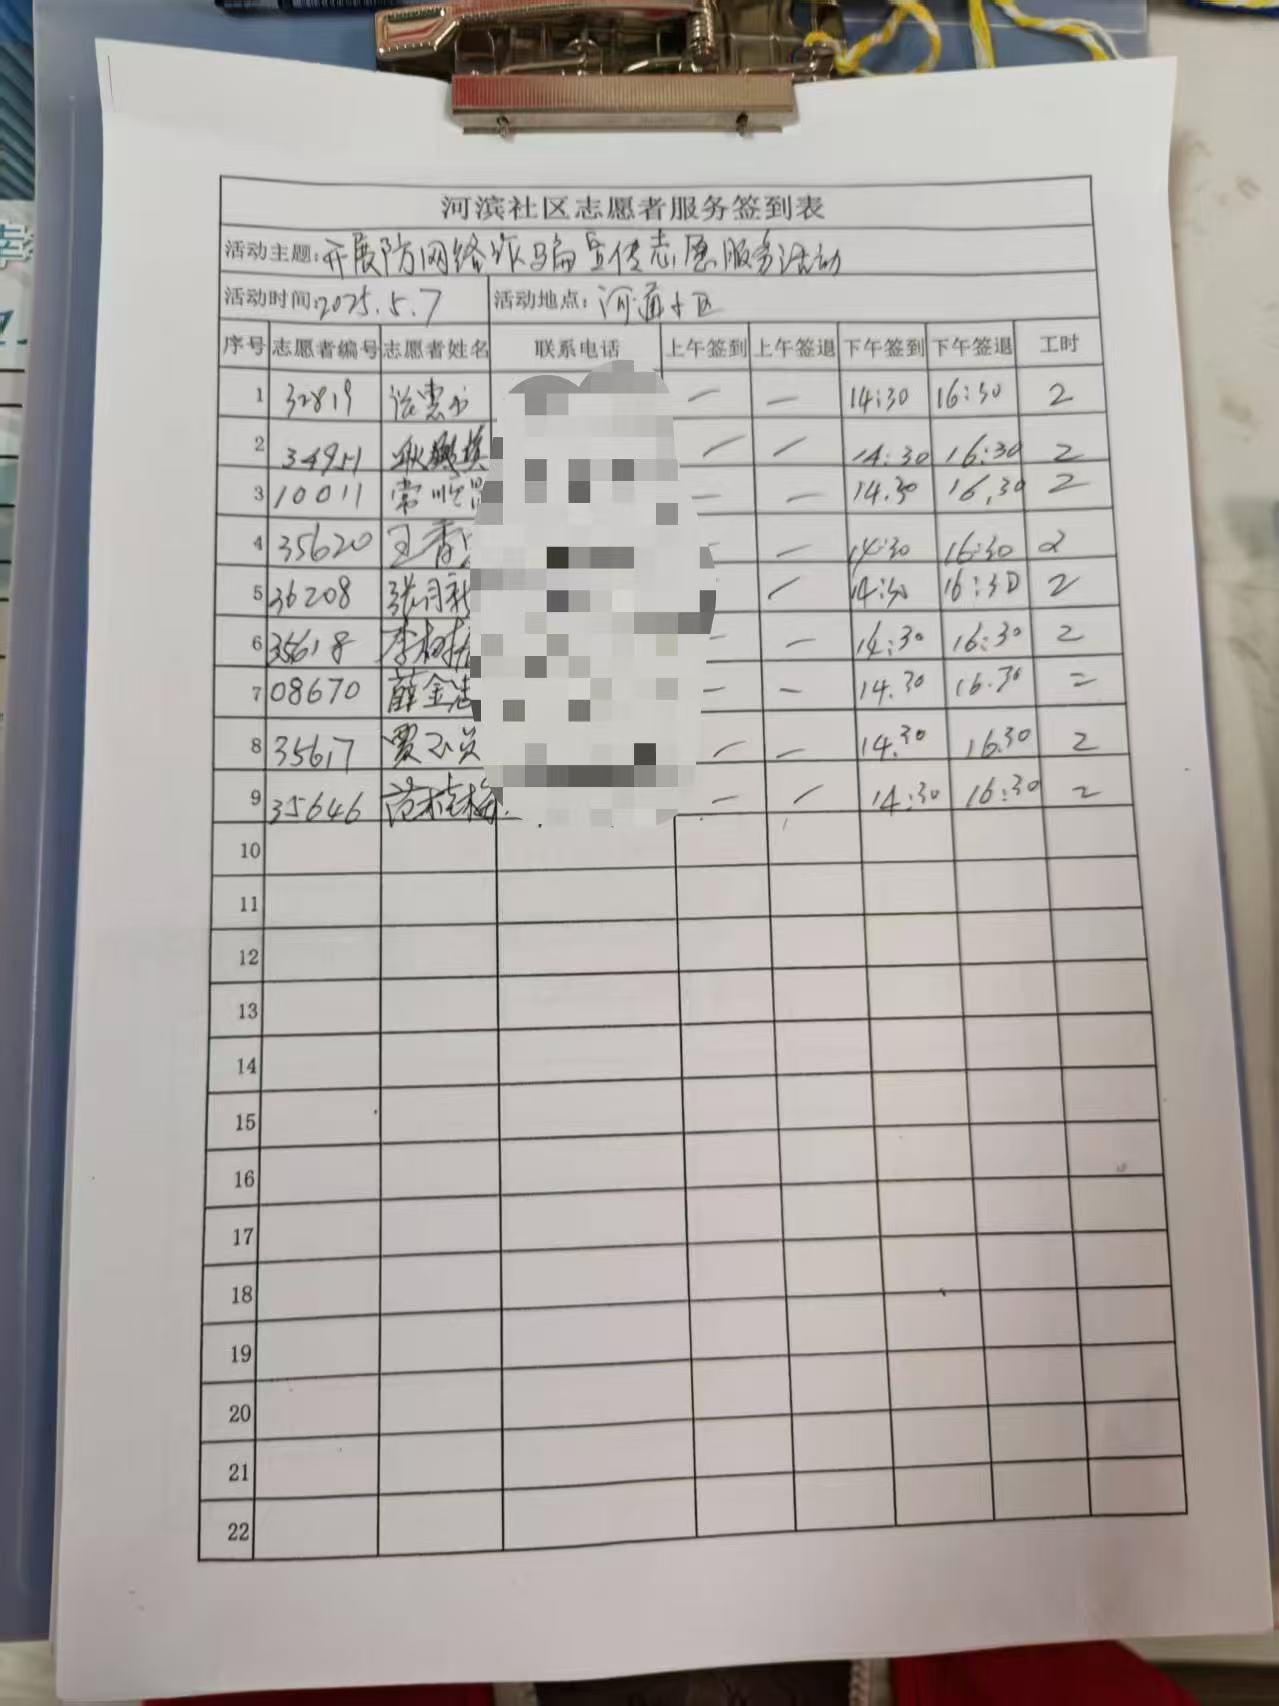 河滨社区志愿者服务签到表
活动主题:开展防网络诈骗宣传志愿服务活动
活动时间:2025.5.7 活动地点:河道小区
序号 志愿者编号 志愿者姓名 联系电话 上午签到 上午签退 下午签到 下午签退 工时
1 32819 — — 14:30 16:30 2
2 — — 14:30 16:30 2
3 10011 常 — — 14.30 16.30 2
4 35620 王香 — — 14:30 16:30 2
5 36208 张 — 14:30 16:30 2
6 35618 李 — — 14:30 16:30 2
7 08670 薛金 — — 14.30 16.30 2
8 35617 贾玉 — — 14.30 16.30 2
9 35646 范桂梅 — — 14:30 16:30 2
10
11
12
13
14
15
16
17
18
19
20
21
22